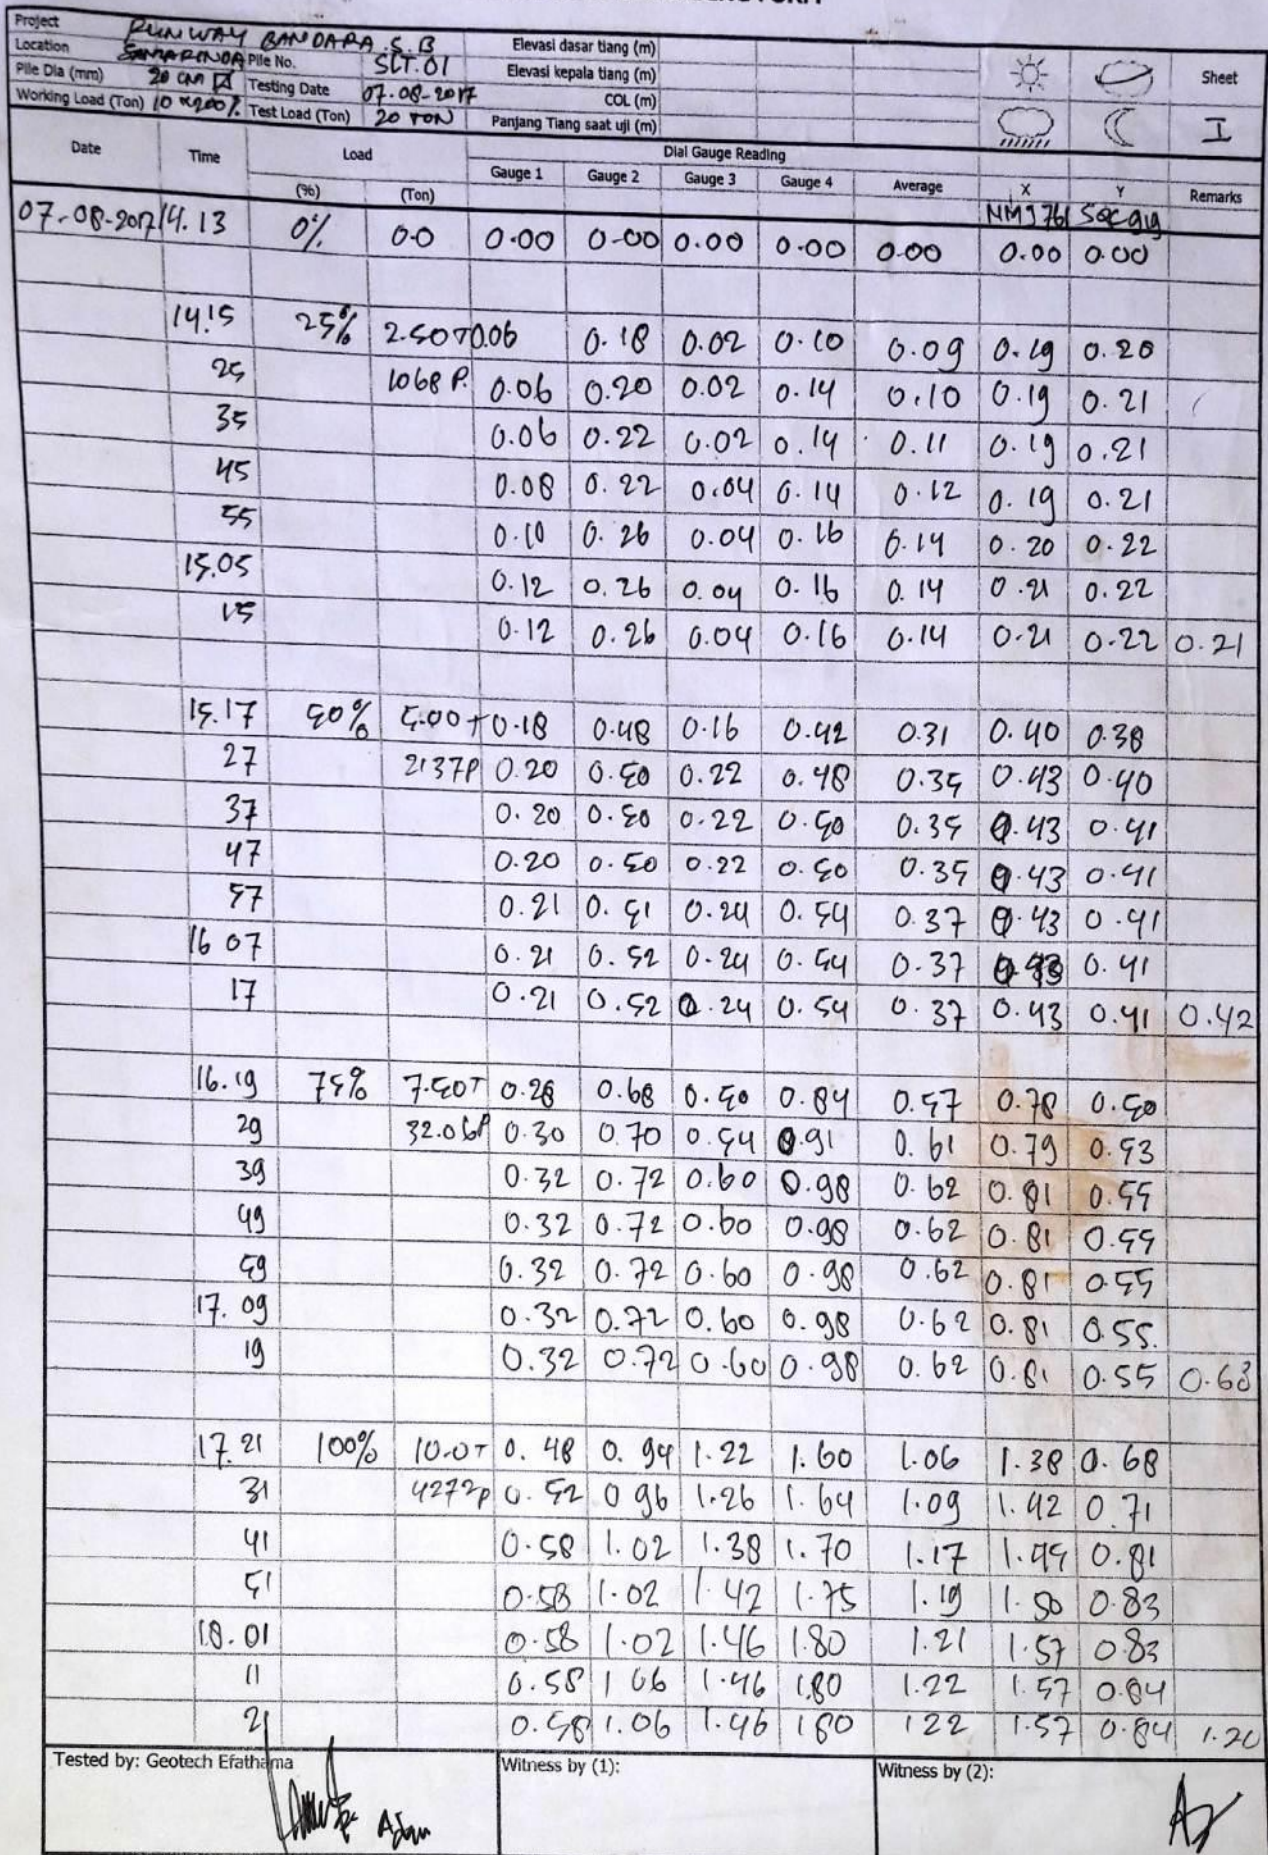 Project RUNWAY BANDARA S.B Elevasi dasar tiang (m)
Location SAMARINDA Pile No. SLT.01 Elevasi kepala tiang (m) Sheet
Pile Dia (mm) 20 cm Testing Date 07.08-2017 COL (m)
Working Load (Ton) 10 x200% Test Load (Ton) 20 TON Panjang Tiang saat uji (m) I
Date Time Load Dial Gauge Reading
(%) (Ton) Gauge 1 Gauge 2 Gauge 3 Gauge 4 Average X Y Remarks
07-08-2017 14.13 0% 0.0 0.00 0.00 0.00 0.00 0.00 0.00 0.00
14.15 25% 2.50T 0.06 0.18 0.02 0.10 0.09 0.19 0.20
25 1068 P. 0.06 0.20 0.02 0.14 0.10 0.19 0.21
35 0.06 0.22 0.02 0.14 0.11 0.19 0.21
45 0.08 0.22 0.04 0.14 0.12 0.19 0.21
55 0.10 0.26 0.04 0.16 0.14 0.20 0.22
15.05 0.12 0.26 0.04 0.16 0.14 0.21 0.22
15 0.12 0.26 0.04 0.16 0.14 0.21 0.22 0.21
15.17 50% 5.00T 0.18 0.48 0.16 0.42 0.31 0.40 0.38
27 2137P 0.20 0.50 0.22 0.48 0.35 0.43 0.40
37 0.20 0.50 0.22 0.50 0.35 0.43 0.41
47 0.20 0.50 0.22 0.50 0.35 0.43 0.41
57 0.21 0.51 0.24 0.54 0.37 0.43 0.41
16 07 0.21 0.52 0.24 0.54 0.37 0.43 0.41
17 0.21 0.52 0.24 0.54 0.37 0.43 0.41 0.42
16.19 75% 7.50T 0.28 0.68 0.50 0.84 0.57 0.78 0.50
29 32.06P 0.30 0.70 0.54 0.91 0.61 0.79 0.53
39 0.32 0.72 0.60 0.98 0.62 0.81 0.55
49 0.32 0.72 0.60 0.98 0.62 0.81 0.55
59 0.32 0.72 0.60 0.98 0.62 0.81 0.55
17.09 0.32 0.72 0.60 0.98 0.62 0.81 0.55.
19 0.32 0.72 0.60 0.98 0.62 0.81 0.55 0.63
17.21 100% 10.0T 0.48 0.94 1.22 1.60 1.06 1.38 0.68
31 4272P 0.52 0 96 1.26 1.64 1.09 1.42 0.71
41 0.58 1.02 1.38 1.70 1.17 1.49 0.81
51 0.58 1.02 1.42 1.75 1.19 1.50 0.83
18.01 0.58 1.02 1.46 1.80 1.21 1.57 0.83
11 0.58 1 06 1.46 1.80 1.22 1.57 0.84
21 0.58 1.06 1.46 180 122 1.57 0.84 1.20
Tested by: Geotech Efathama Witness by (1): Witness by (2):